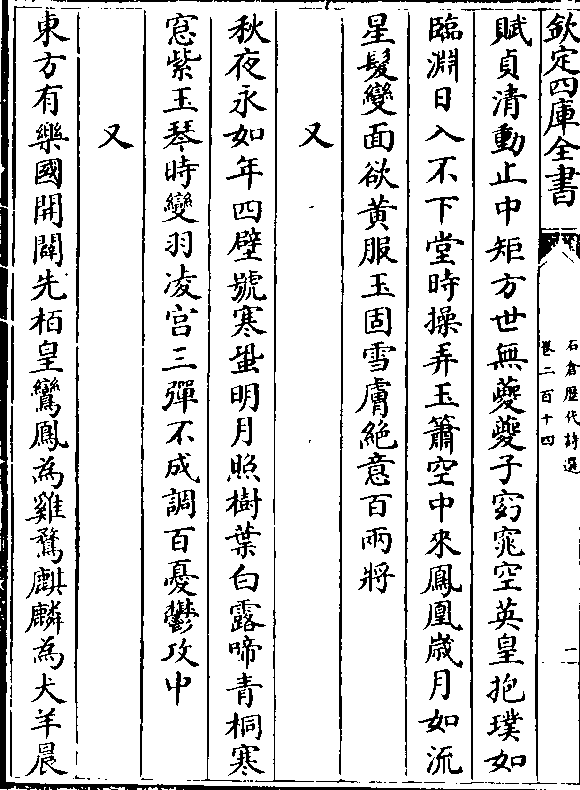 欽定四庫全書
石倉歴代詩選
卷二百十四
二
賦貞清動止中矩方世無夔夔子窈窕空英皇抱璞如
臨淵日入不下堂時操弄玉簫空中來鳳凰嵗月如流
星髮變面欲黄服玉固雪膚絶意百兩將
又
秋夜永如年四壁號寒蛩明月照樹葉白露啼青桐寒
窓紫玉琴時變羽凌宫三彈不成調百憂鬱攻中
又
東方有樂國開闢先栢皇鸞鳳為雞鶩麒麟為犬羊晨